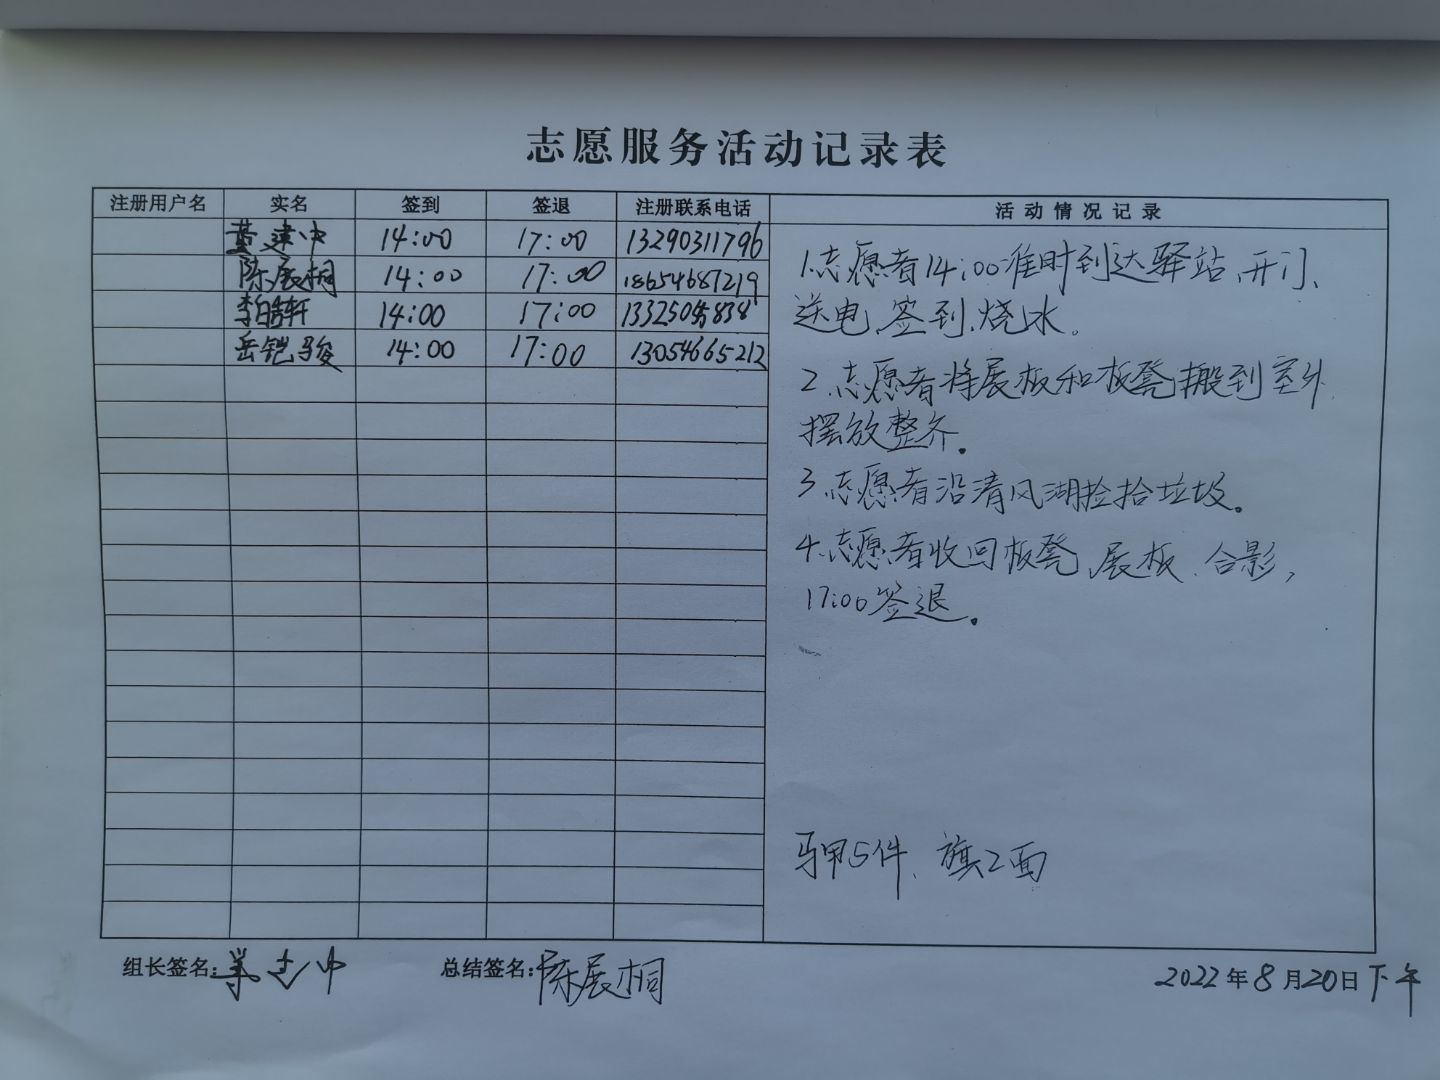 志愿服务活动记录表
注册用户名 实名 签到 签退 注册联系电话 活动情况记录
黄建中 14:00 17:00 13290311796
陈展桐 14:00 17:00 18654687219
李柏轩 14:00 17:00
岳铠骏 14:00 17:00 13054665212
1.志愿者14:00准时到达驿站、开门、
送电、签到、烧水。
2.志愿者将展板和板凳搬到室外、
摆放整齐。
3.志愿者沿清风湖捡拾垃圾。
4.志愿者收回板凳、展板、合影,
17:00签退。
马甲5件、旗2面
组长签名:黄建中 总结签名:陈展桐 2022年8月20日下午